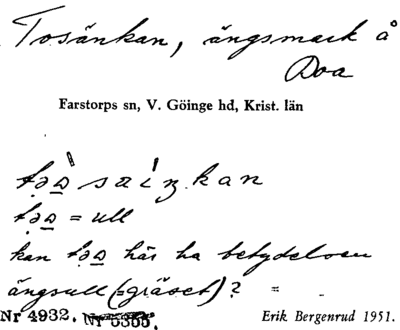 Tosänkan, ängsmark å
Boa
Farstorps sn, V. Göinge hd, Krist. län
= ull
kan här ha betydelsen
ängsull (= gräset)? =
Nr 4932. Nr 5355.
Erik Bergenrud 1951.